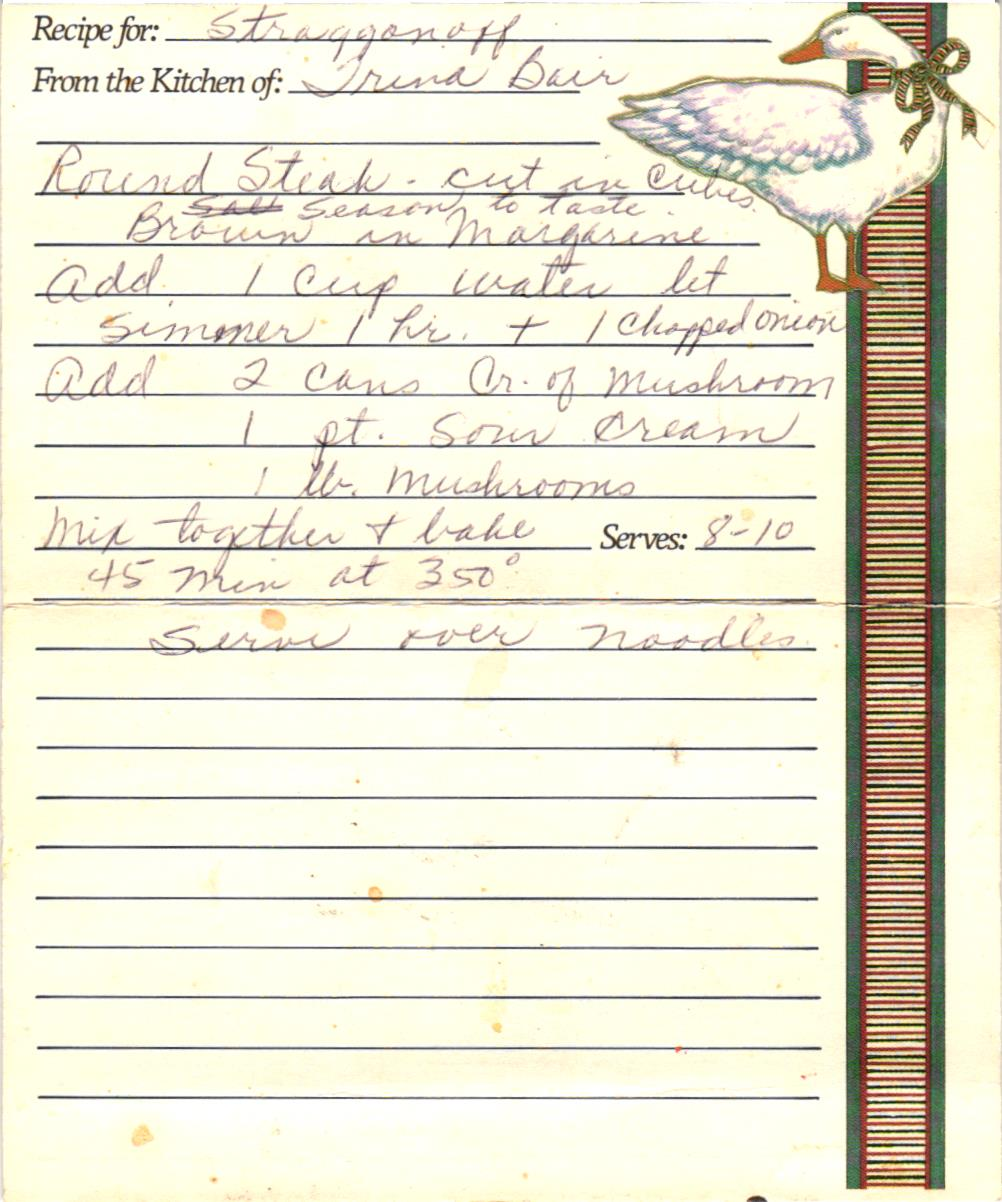 Recipe for: Straggonoff
From the Kitchen of: Trina Bair
Round Steak - cut in cubes.
Salt Season to taste.
Brown in Margarine
Add 1 cup water let
Simmer 1 hr. + 1 Chopped onion
Add 2 cans Cr. of Mushroom
1 pt. Sour Cream
1 lb. Mushrooms
Mix together + bake Serves: 8-10
45 min at 350°
Serve over noodles